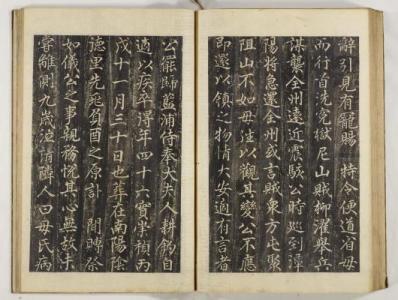 辭引見有寵賜特令便道省母
而行首洗冤獄尼山賊柳濯舉兵
謀襲全州遠近震駭公時巡到漳
陽將急還全州或言賊衆方屯聚
阻山不如毋進以觀其變公不應
即還以鎮之物情大安適有言者
公罷歸籃浦侍奉大夫人耕釣自
適以疾卒得年四十六實崇禎丙
戌十一月三十日也葬在南陽陰
德里先兆負酉之原訃聞賻祭
如儀公之事親務悅其心無故未
嘗離側九歲從隣人曰母氏病